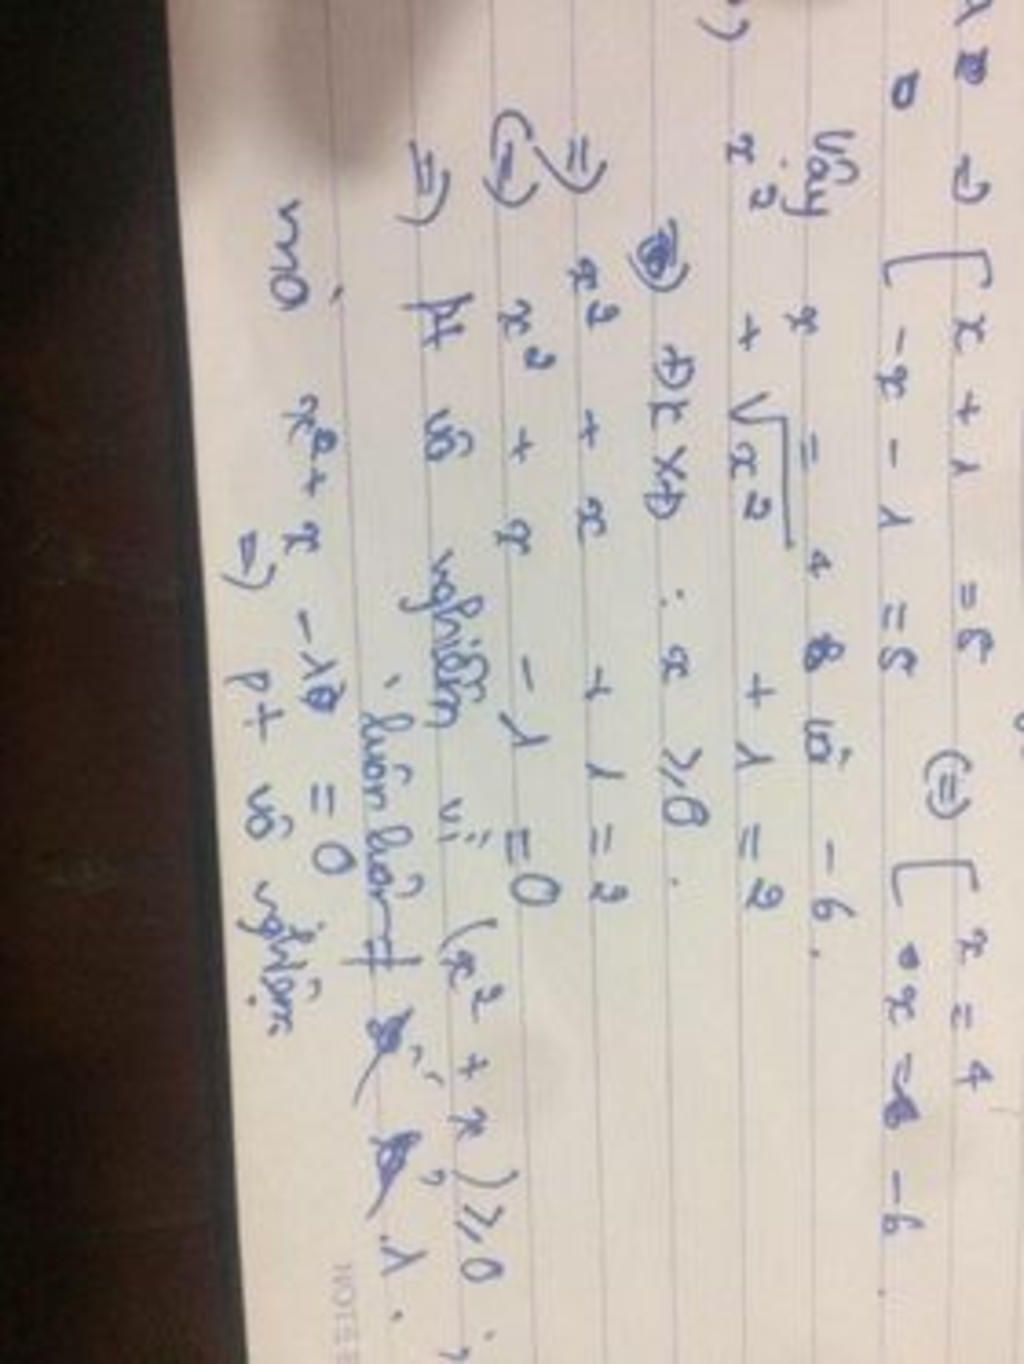 =) [ x + 1 = 5 (=) [ x = 4
[ -x - 1 = 5 [ x = -6.
Vậy x = 4 và -6.
x² + √x² + 1 = 2
ĐKXĐ : x ≥ 0.
=) x² + x + 1 = 2
(=) x² + x - 1 = 0
=) pt vô nghiệm vì (x² + x) ≥ 0 ;
luôn luôn ≠ 1.
mà x² + x - 1 = 0
=) pt vô nghiệm.
NOTE